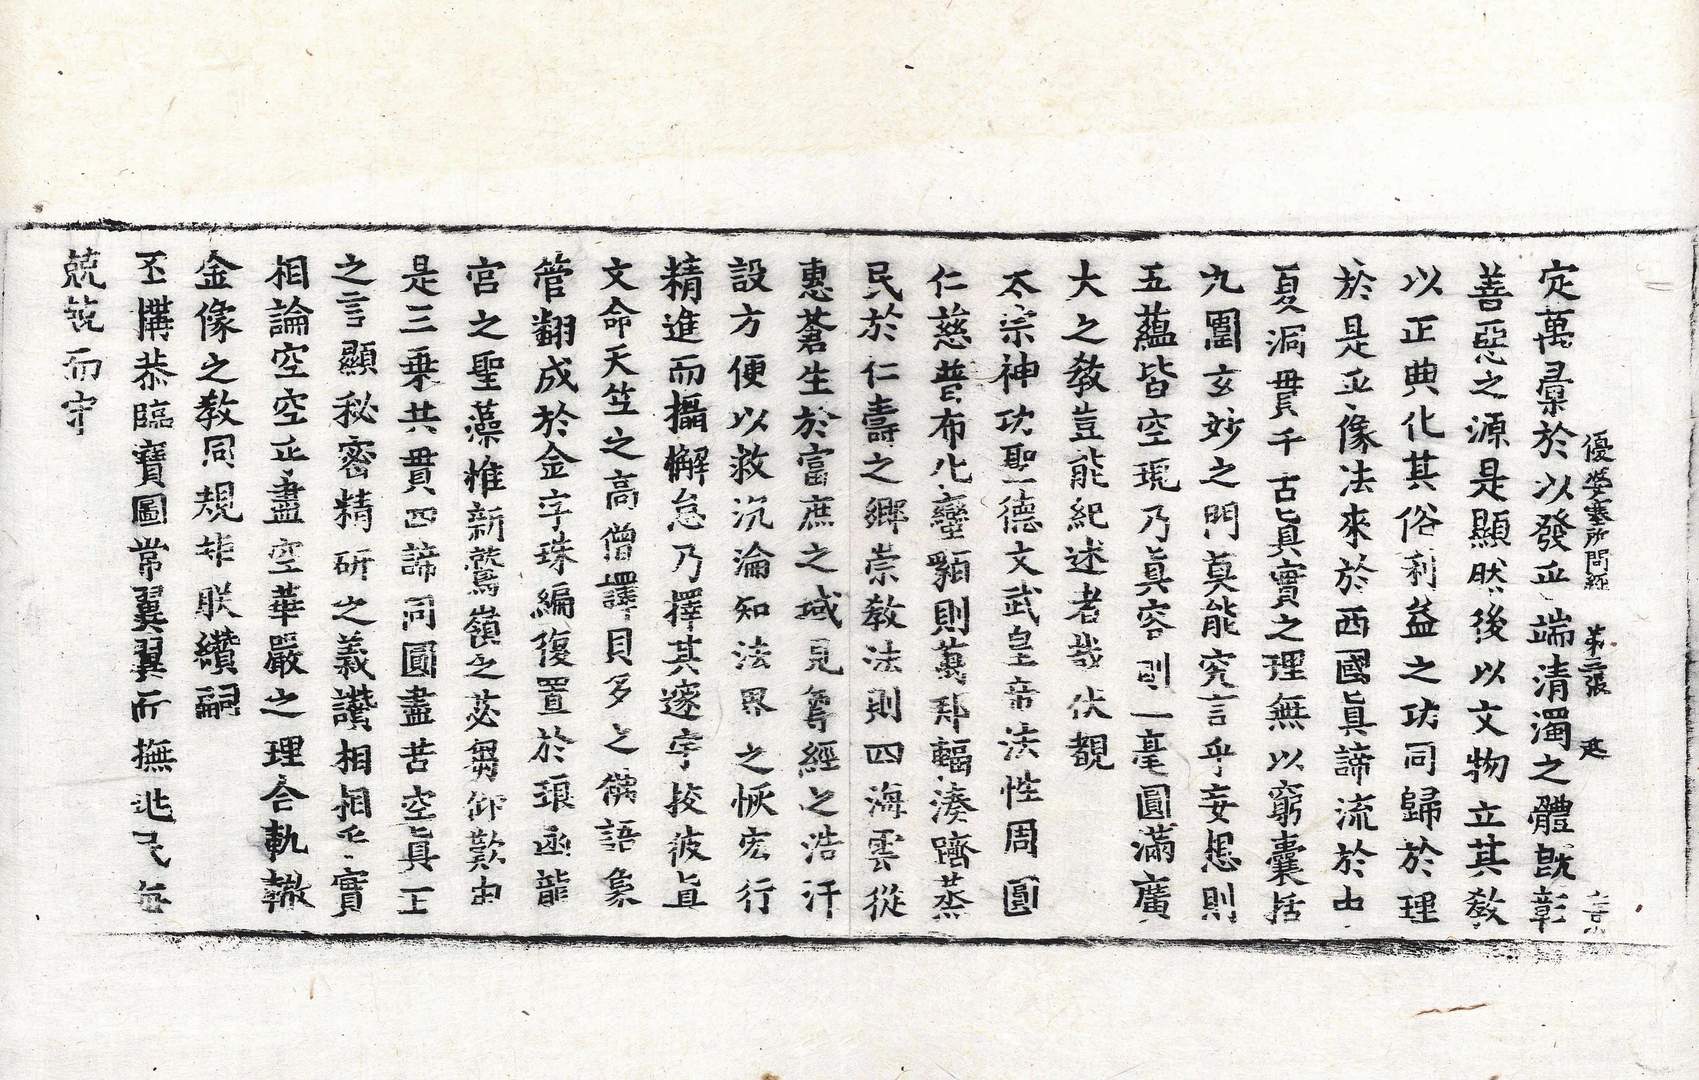 優婆塞所問經 第二張
定萬彙於以發乎端清濁之體旣彰
善惡之源是顯然後以文物立其敎
以正典化其俗利益之功同歸於理
於是乎像法來於西國眞諦流於中
夏洞貫千古眞實之理無以窮囊括
九圍玄妙之門莫能究言乎妄想則
五蘊皆空現乃眞容則一毫圓滿廣
大之敎豈能紀述者哉伏覩
太宗神功聖德文武皇帝法性周圓
仁慈普布化蠻貊則萬邦輻湊躋蒸
民於仁壽之鄉崇敎法則四海雲從
惠蒼生於富庶之域見尊經之浩汗
設方便以救沉淪知法界之恢宏行
精進而攝懈怠乃擇其邃宇挍彼眞
文命天竺之高僧譯貝多之餘語象
管翻成於金字珠編復置於琅函龍
宮之聖藻惟新鷲嶺之苾蒭仰歎由
是三乗共貫四諦同圓盡苦空眞正
之言顯秘密精研之義讚相相乎實
相論空空乎盡空華嚴之理合軌轍
金像之敎同規非朕纘嗣
丕搆恭臨寶圖常翼翼而撫兆民每
兢兢而守